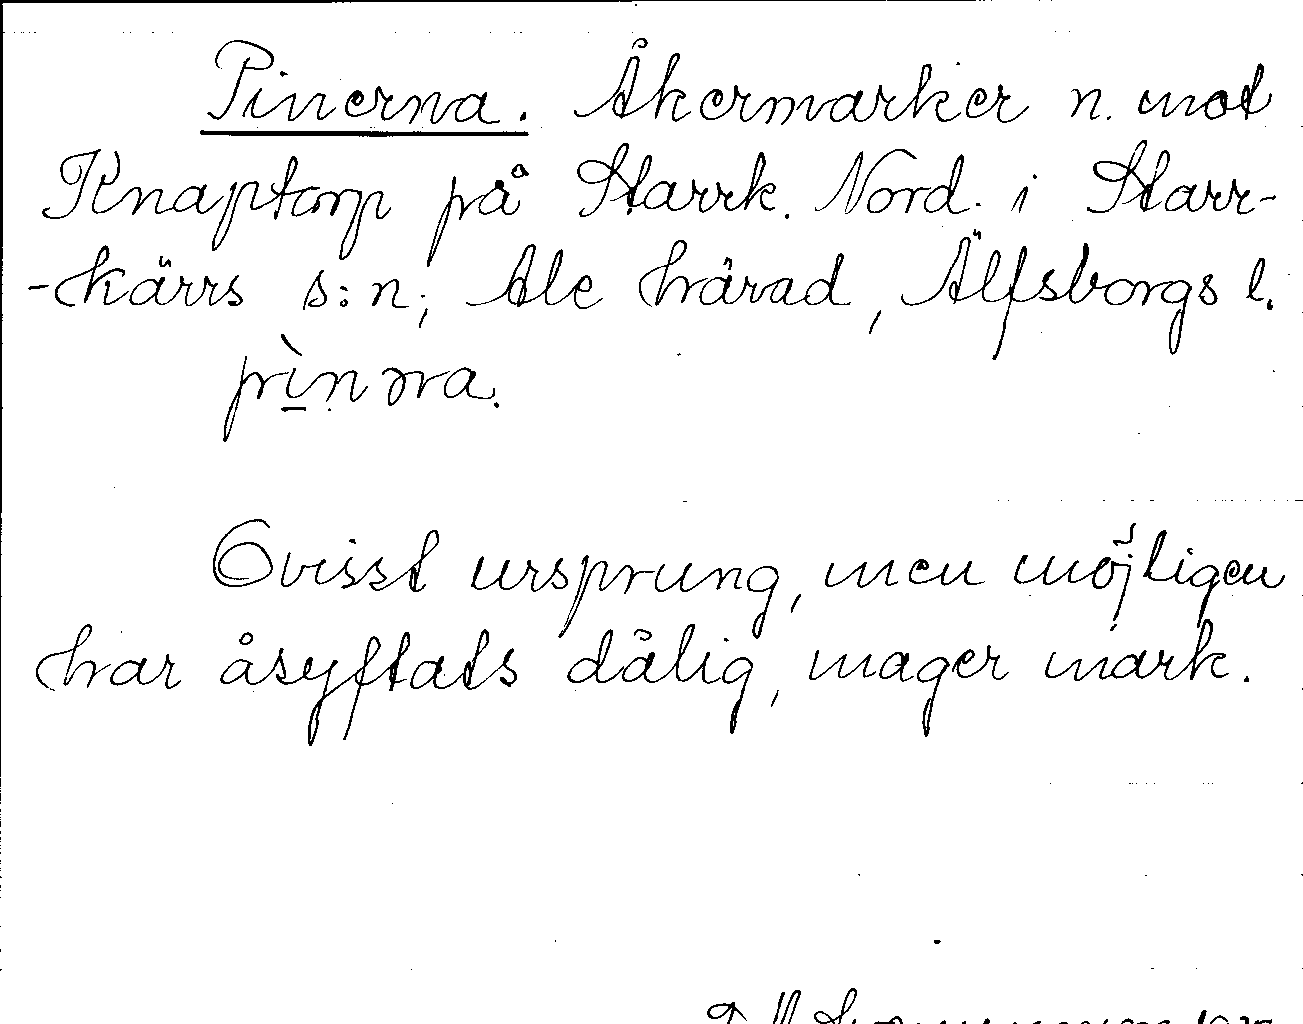 Pinerna. Åkermarker n. mot
Knaptorp på Starrk. Nord. i Starr-
-kärrs s:n, Ale härad, Älfsborgs l.
pìnəra.
Ovisst ursprung, men möjligen
har åsyftats dålig, mager mark.